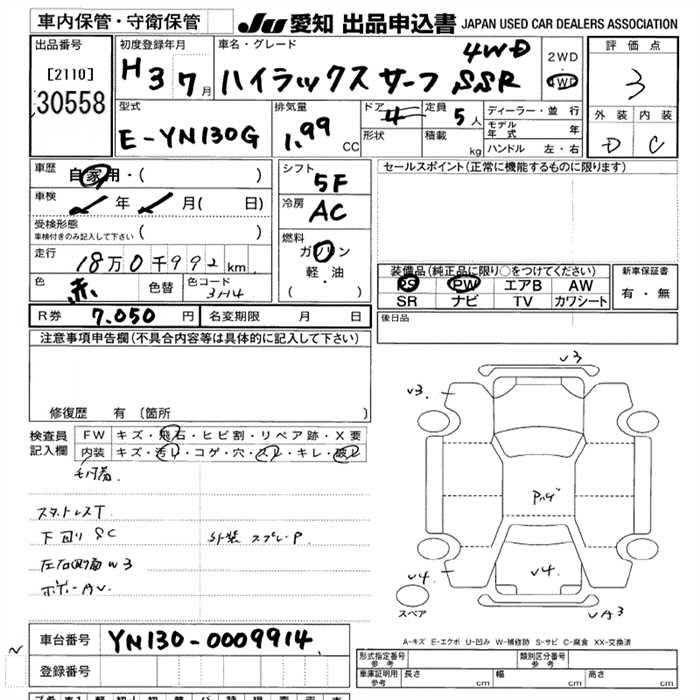 車内保管・守衛保管
JU 愛知 出品申込書 JAPAN USED CAR DEALERS ASSOCIATION
出品番号
[2110]
30558
初度登録年月
H 3 7月
車名・グレード
4WD
ハイラックスサーフ SSR
2WD
・
4WD
評価点
3
外装 内装
D C
型式
E-YN130G
排気量
1.99 CC
ドア 4
形状
定員 5人
積載 kg
ディーラー・並行
モデル年式 年
ハンドル 左・右
車歴
自家用・( )
車検
年 月( 日)
受検形態
車検付きのみ記入して下さい ( )
走行
18万0千992km
色
赤
色替
色コード
3H4
シフト
5F
冷房
AC
燃料
ガソリン
軽・油
( )
セールスポイント(正常に機能するものに限ります)
装備品(純正品に限り○をつけてください)
PS PW エアB AW
SR ナビ TV カワシート
新車保証書
有・無
後日品
R券 7.050円 名変期限 月 日
注意事項申告欄(不具合内容等は具体的に記入して下さい)
修復歴 有〔箇所 〕
検査員
記入欄
FW キズ・飛石・ヒビ割・リペア跡・X要
内装 キズ・汚レ・コゲ・穴・スレ・キレ・破レ
スタットレスT
下回りSC
外装スプレーP
左右側面W3
ボデーAV
V3
V3.
V4
V4.
スペア
A-キズ E-エクボ U-凹み W-補修跡 S-サビ C-腐食 XX-交換済
車台番号 YN130-0009914
登録番号
形式指定番号
参考
類別区分番号
参考
車庫証明用
参考
長さ cm 幅 cm 高さ cm